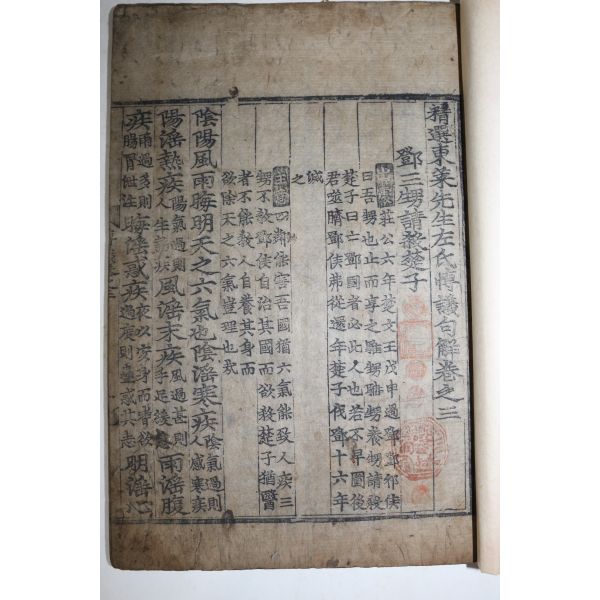 精選東萊先生左氏博議句解卷之三
鄧三甥請殺楚子
莊公六年楚文王戊申過鄧鄧祁侯
曰吾甥也止而享之騅甥聃甥養甥請殺
楚子曰亡鄧國者必此人也若不早圖後
君噬臍鄧侯弗從還年楚子伐鄧十六年
滅
之
四鄰能害吾國猶六氣能致人疾三
甥不敎鄧侯自治其國而欲殺楚子猶醫
者不能敎人自養其身而
欲除天之六氣豈理也哉
陰陽風雨晦明天之六氣也陰淫寒疾陰氣過則人感寒疾
陽淫熱疾陽氣過則人生熱疾風淫末疾風過甚則手足緩急雨淫腹
疾雨過多則腸胃泄注晦淫惑疾夜以安身而嗜欲過度則蠱惑其志明淫心